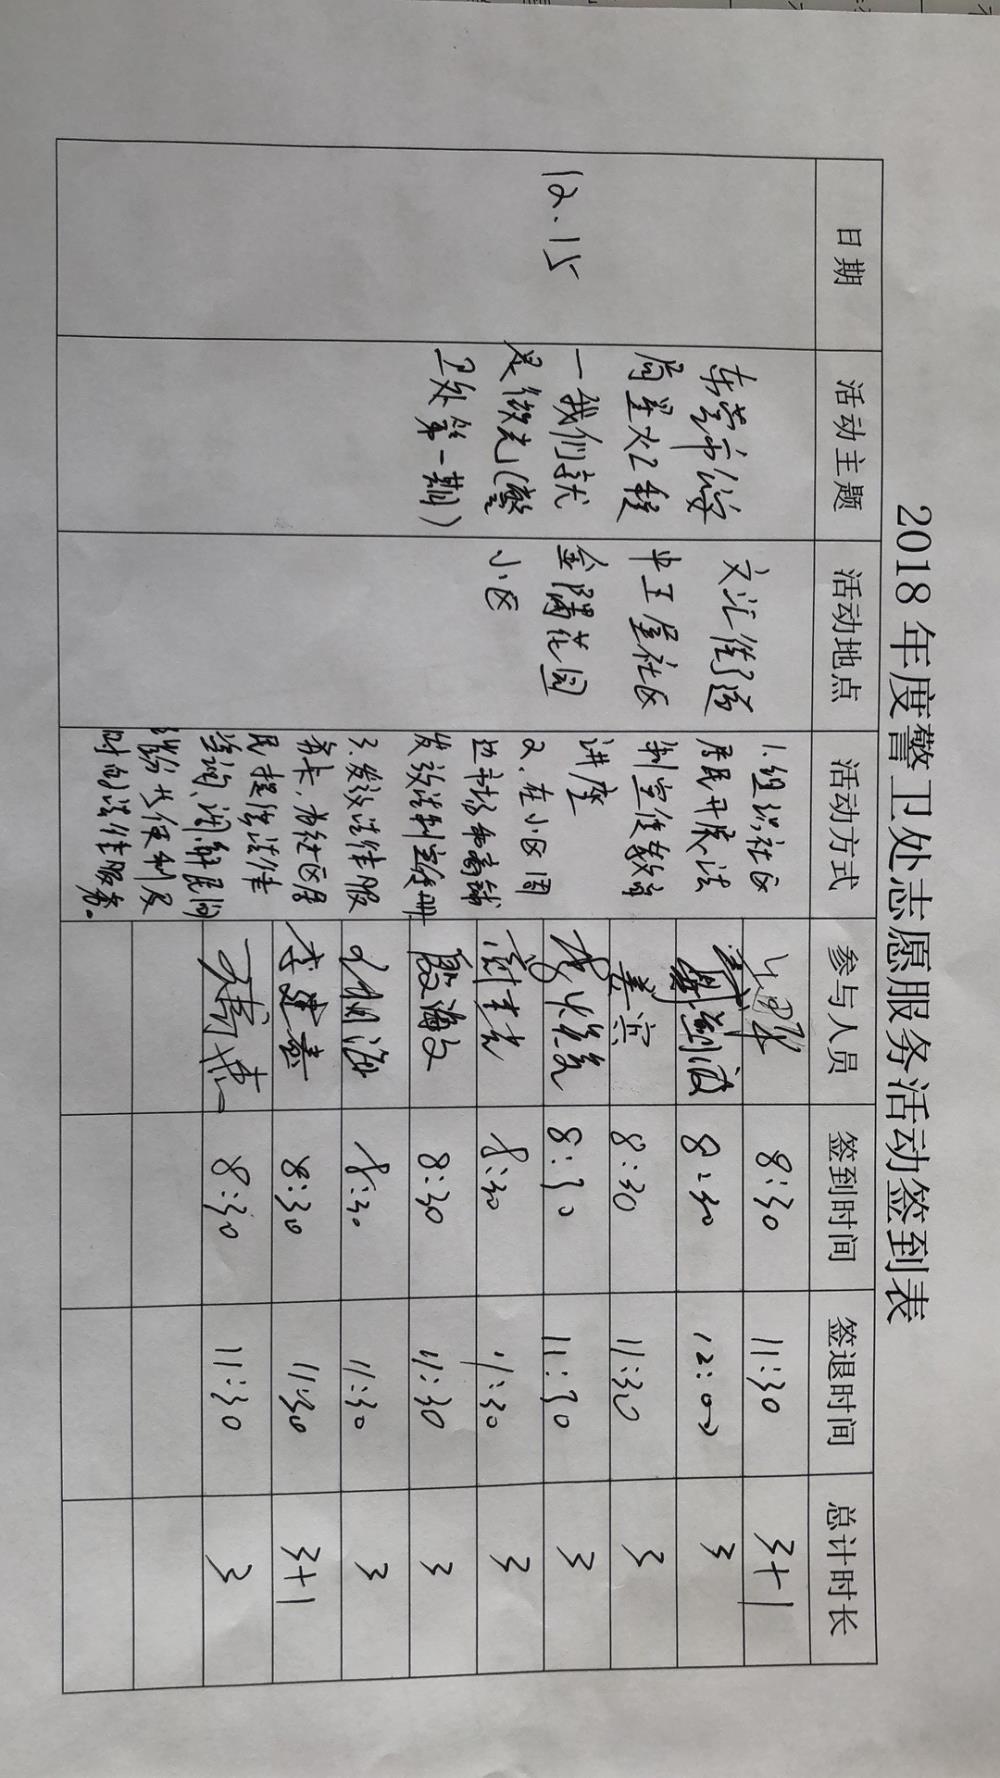 2018 年度警卫处志愿服务活动签到表
日期 活动主题 活动地点 活动方式 参与人员 签到时间 签退时间 总计时长
12.15
东营市公安
局星火工程
一我们就
是微光(警
卫处第一期)
文汇街道
中王屋社区
金隅花园
小区
1.组织社区
居民开展法
制宣传教育
讲座
2.在小区周
边市场和商铺
发放法制宣传册
3.发放法律服
务卡,为社区居
民提供法律
咨询、调解民间
纠纷与便利及
时的法律服务。
8:30 11:30 3+1
8:30 12:00 3
姜滨 8:30 11:30 3
8:30 11:30 3
8:30 11:30 3
殷海文 8:30 11:30 3
8:30 11:30 3
李建嘉 8:30 11:30 3+1
8:30 11:30 3